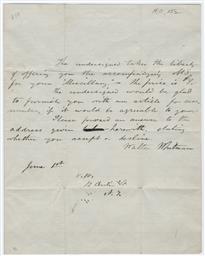 The undersigned takes the liberty
of offering you the accompanying MS.
for your "Miscellany," the price is $8.
the undersigned would be glad
to furnish you with an article for each
number, if it would be agreeable to you.
Please forward an answer to the
address given herewith, stating
whether you accept or decline
Walter Whitman
June 1st
N. Y.